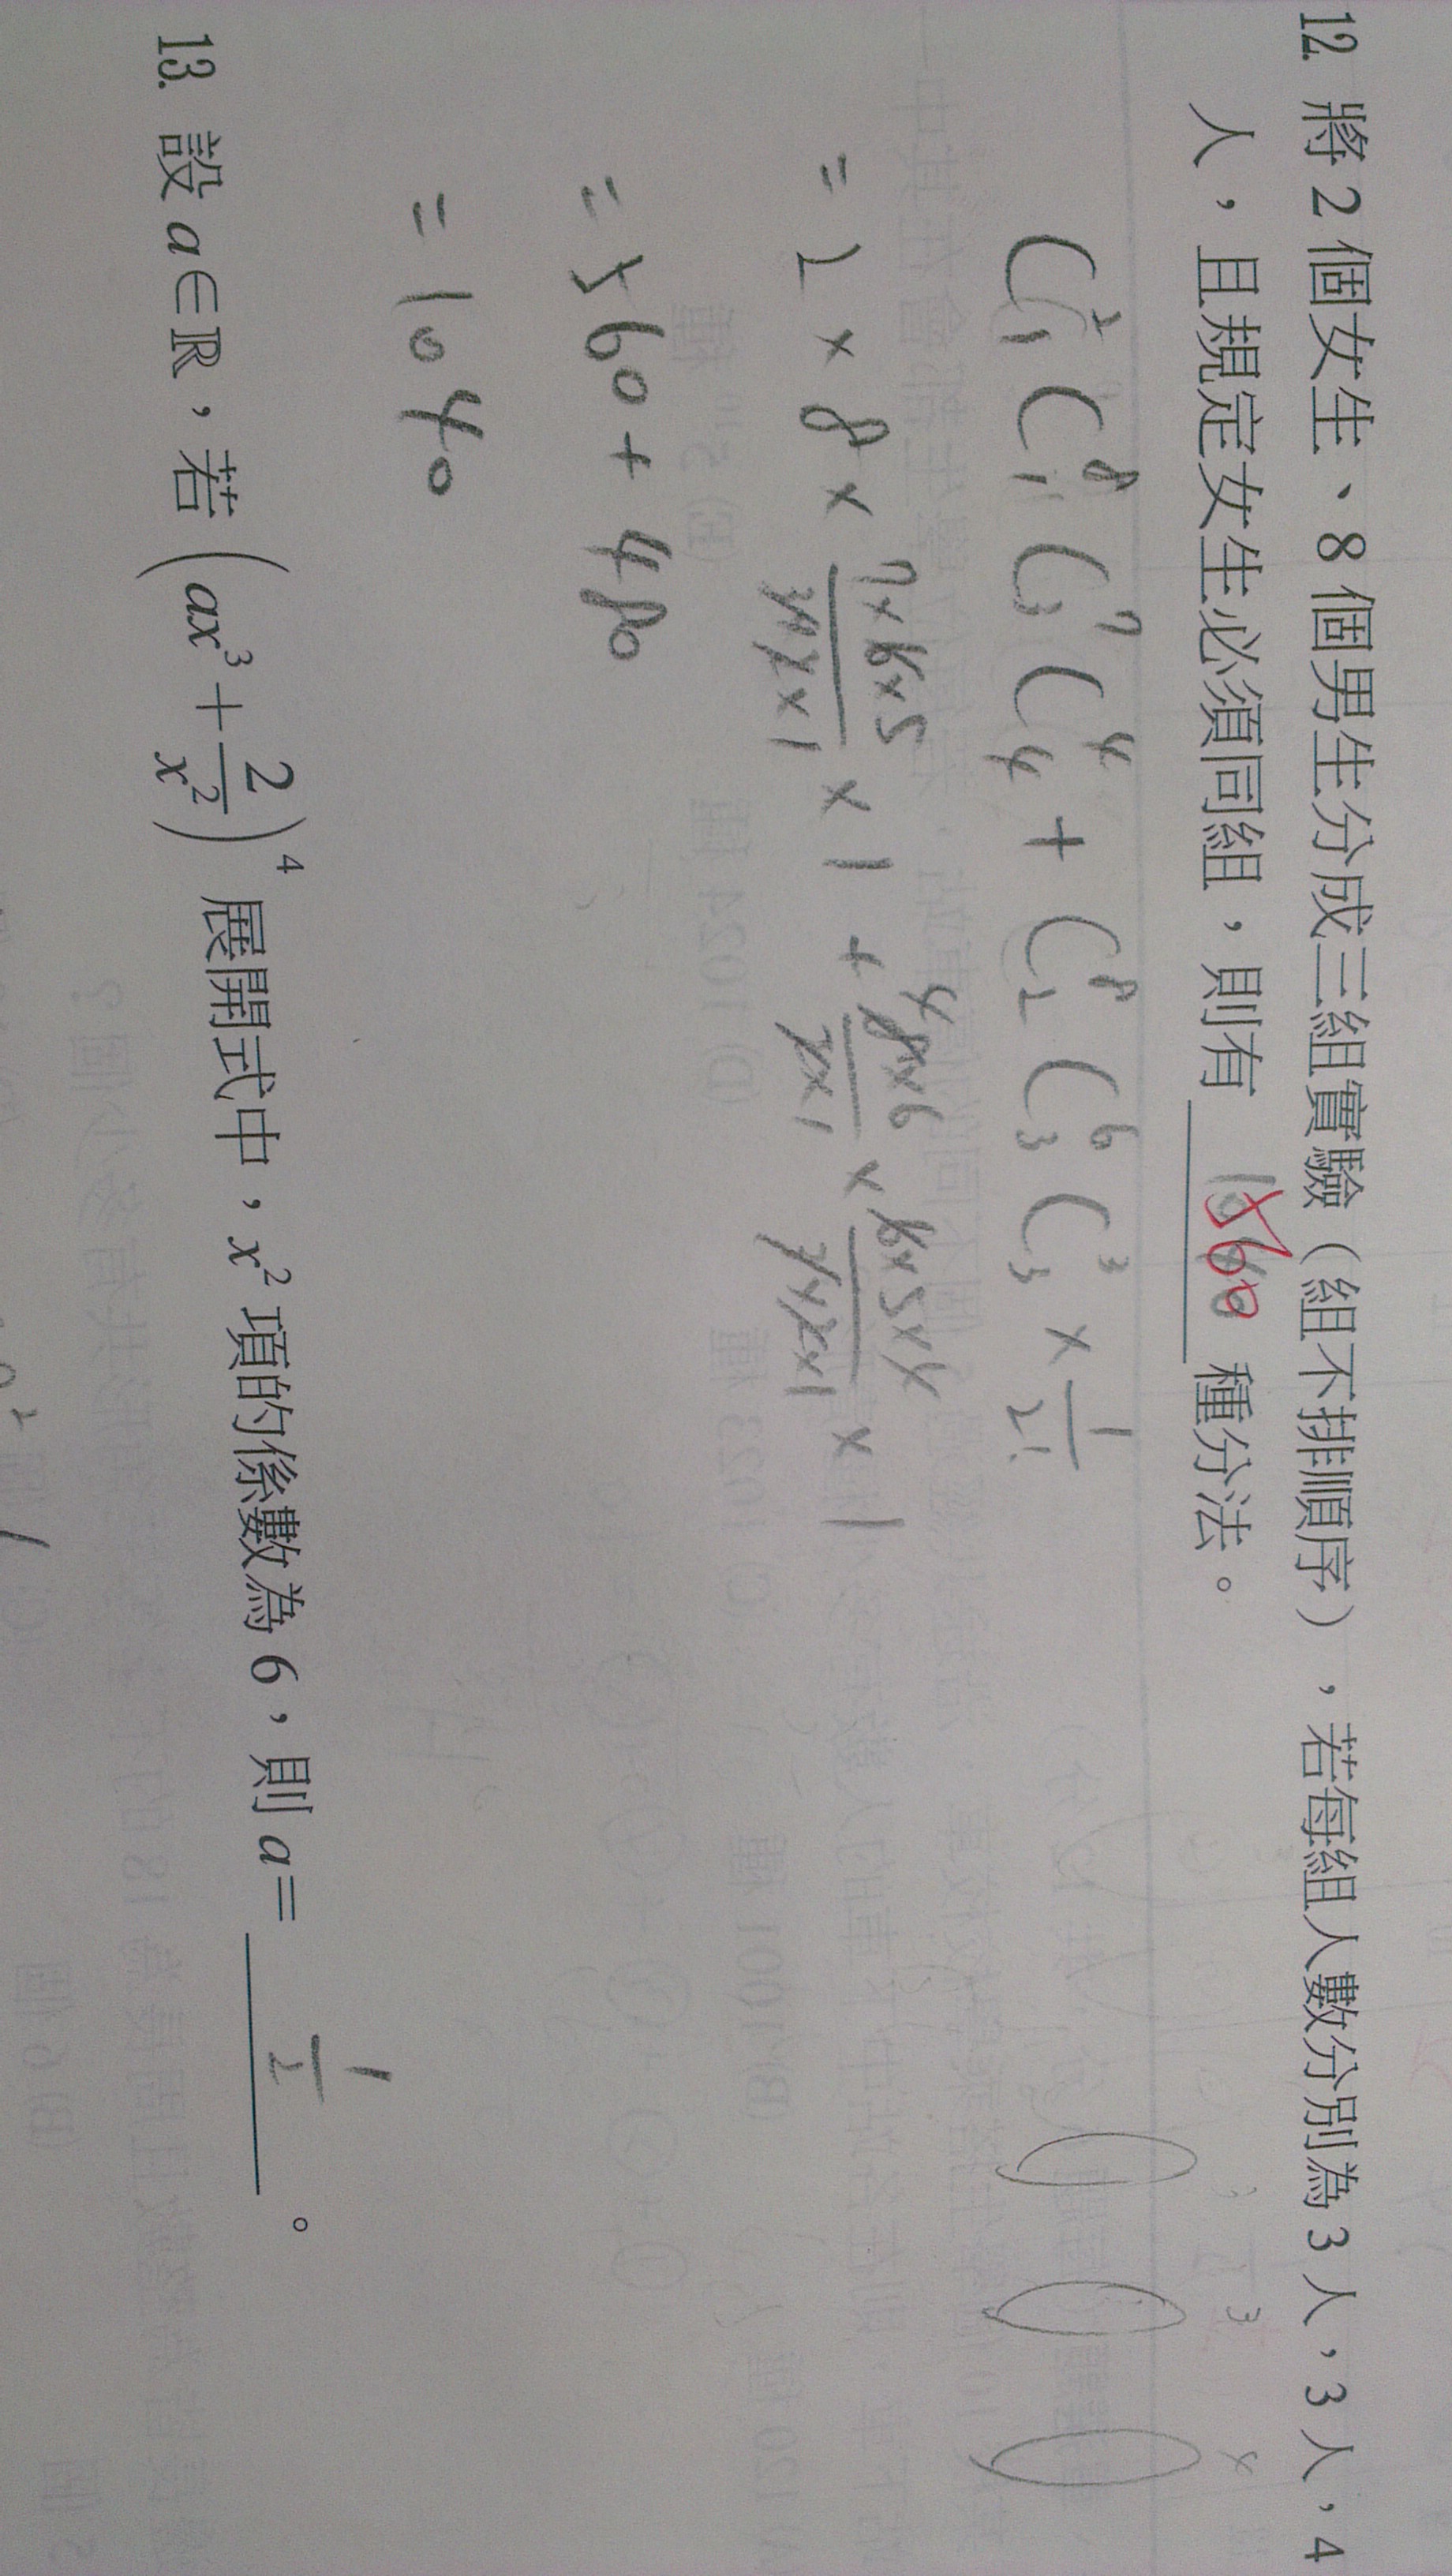 12. 將 2 個女生、8 個男生分成三組實驗（組不排順序），若每組人數分別為 3 人，3 人，4
人，且規定女生必須同組，則有 560 種分法。
C²₁ C⁸₁ C⁷₃ C⁴₄ + C⁸₂ C⁶₃ C³₃ × 1/2!
= 2 × 8 × (7×6×5)/(3×2×1) × 1 + (8×6)/(2×1) × (6×5×4)/(3×2×1) × 1
= 560 + 480
= 1040
13. 設 a∈ℝ，若 (ax³ + 2/x²)⁴ 展開式中，x² 項的係數為 6，則 a= 1/2 。